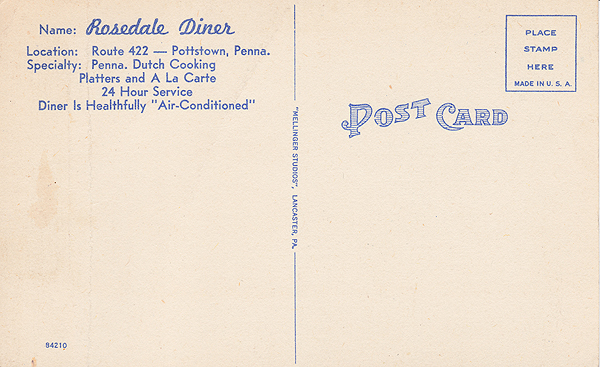 Name: Rosedale Diner
Location: Route 422 — Pottstown, Penna.
Specialty: Penna. Dutch Cooking
Platters and A La Carte
24 Hour Service
Diner Is Healthfully "Air-Conditioned"
84210
"MELLINGER STUDIOS", LANCASTER, PA.
PLACE
STAMP
HERE
MADE IN U. S. A.
POST CARD